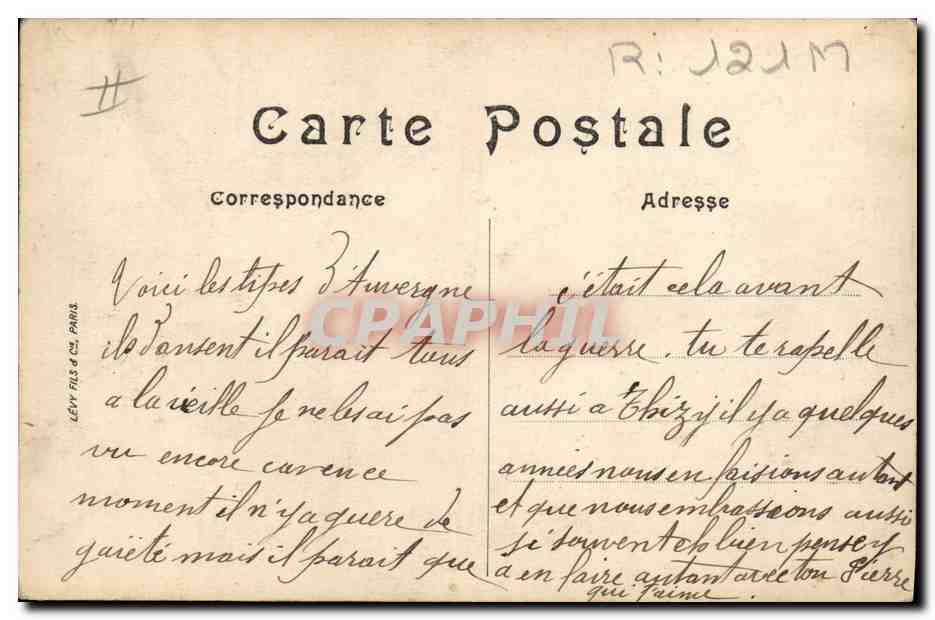 R: 121M
Carte Postale
Correspondance
Adresse
LÉVY FILS & Cie, PARIS.
CPAPHIL
Voici les tipes d'Auvergne
ils dansent il parait tous
a la veille je ne les ai pas
vu encore car en ce
moment il n'y a guere de
gaieté mais il parait que
c'était cela avant
la guerre. tu te rapelle
aussi a Thizy il y a quelques
années nous en faisions autant
et que nous embrassions aussi
si souvent eh bien pense y
a en faire autant avec ton Pierre
qui t'aime.